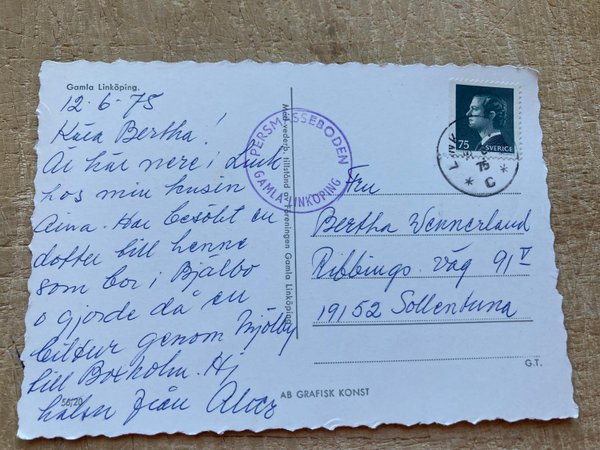 Gamla Linköping.
12.6.75
Kära Bertha!
Är här nere i Link
hos min kusin
Aina. Har besökt en
dotter till henne
som bor i Bjälbo
o gjorde då en
biltur genom Mjölby
till Boxholm. Hj
hälsn från
56/20
Med vederb. tillstånd av Föreningen Gamla Linköping
PERSMÄSSEBODEN
GAMLA LINKÖPING
75
SVERIGE
75
C
Fru
Bertha Wennerland
Ribbings väg 91 V
191 52 Sollentuna
G.T.
AB GRAFISK KONST